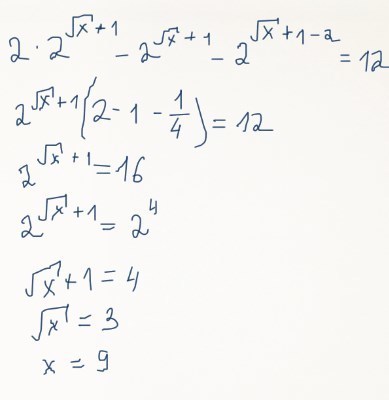 2 · 2^{√x + 1} - 2^{√x + 1} - 2^{√x + 1 - 2} = 12
2^{√x + 1} (2 - 1 - 1/4) = 12
2^{√x + 1} = 16
2^{√x + 1} = 2^4
√x + 1 = 4
√x = 3
x = 9